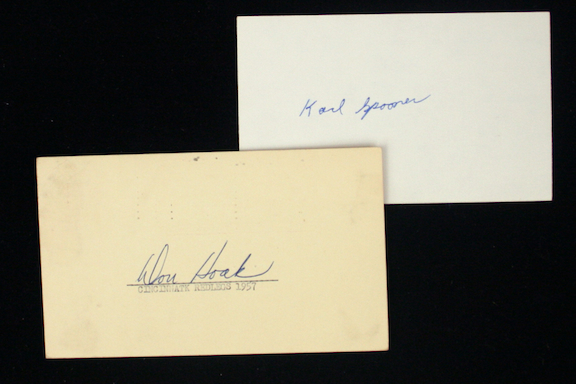 Karl Spooner
Don Hoak
CINCINNATI REDLEGS 1957